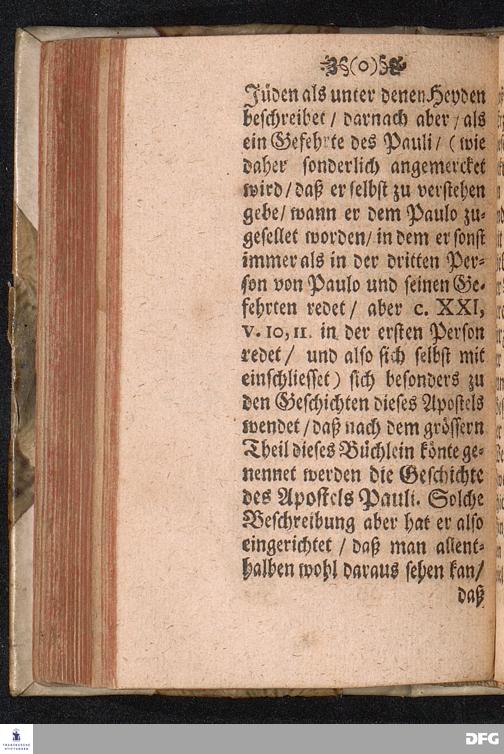 (o)
Jüden als unter denen Heyden
beschreibet / darnach aber / als
ein Gefehrte des Pauli / (wie
daher sonderlich angemercket
wird / daß er selbst zu verstehen
gebe / wann er dem Paulo zu-
gesellet worden / in dem er sonst
immer als in der dritten Per-
son von Paulo und seinen Ge-
fehrten redet / aber c. XXI,
v. 10, 11. in der ersten Person
redet / und also sich selbst mit
einschliesset) sich besonders zu
den Geschichten dieses Apostels
wendet / daß nach dem grössern
Theil dieses Büchlein könte ge-
nennet werden die Geschichte
des Apostels Pauli. Solche
Beschreibung aber hat er also
eingerichtet / daß man allent-
halben wohl daraus sehen kan /
daß
FRANCKESCHE
STIFTUNGEN
DFG